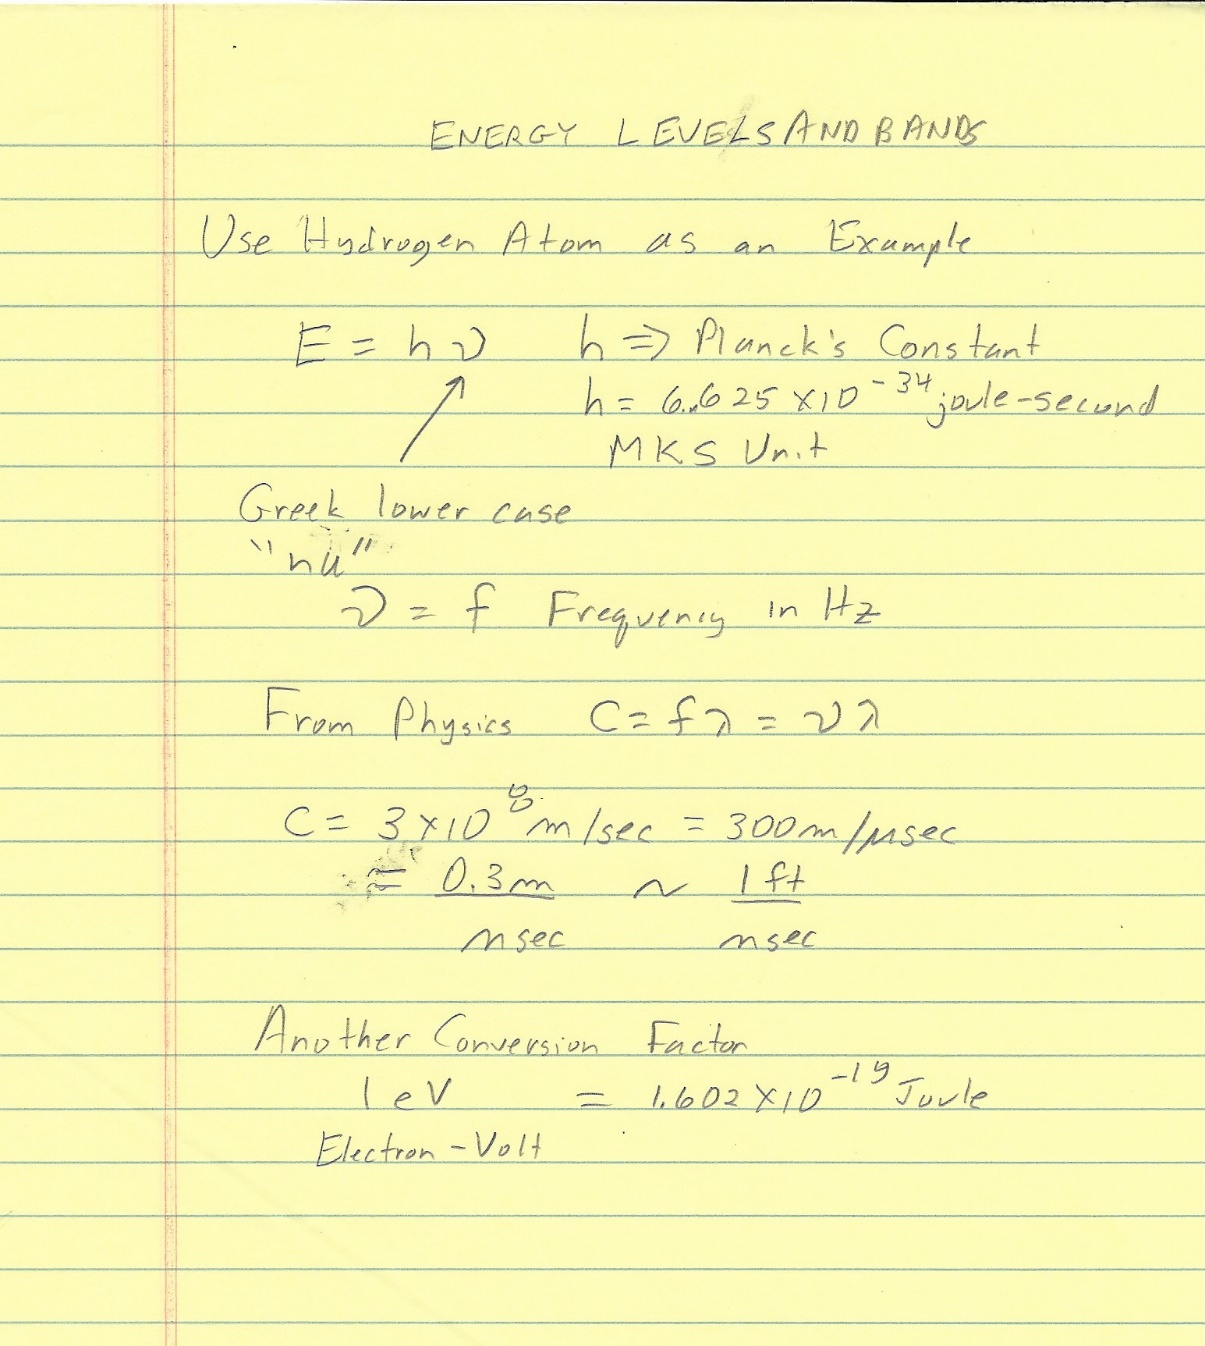 ENERGY LEVELS AND BANDS
Use Hydrogen Atom as an Example
E = hν h ⇒ Planck's Constant
h = 6.625 × 10⁻³⁴ joule-second
MKS Unit
Greek lower case
"nu"
ν = f Frequency in Hz
From Physics C = fλ = νλ
C = 3 × 10⁸ m/sec = 300m/μsec
≈ 0.3m ~ 1 ft
nsec nsec
Another Conversion Factor
1 eV = 1.602 × 10⁻¹⁹ Joule
Electron-Volt